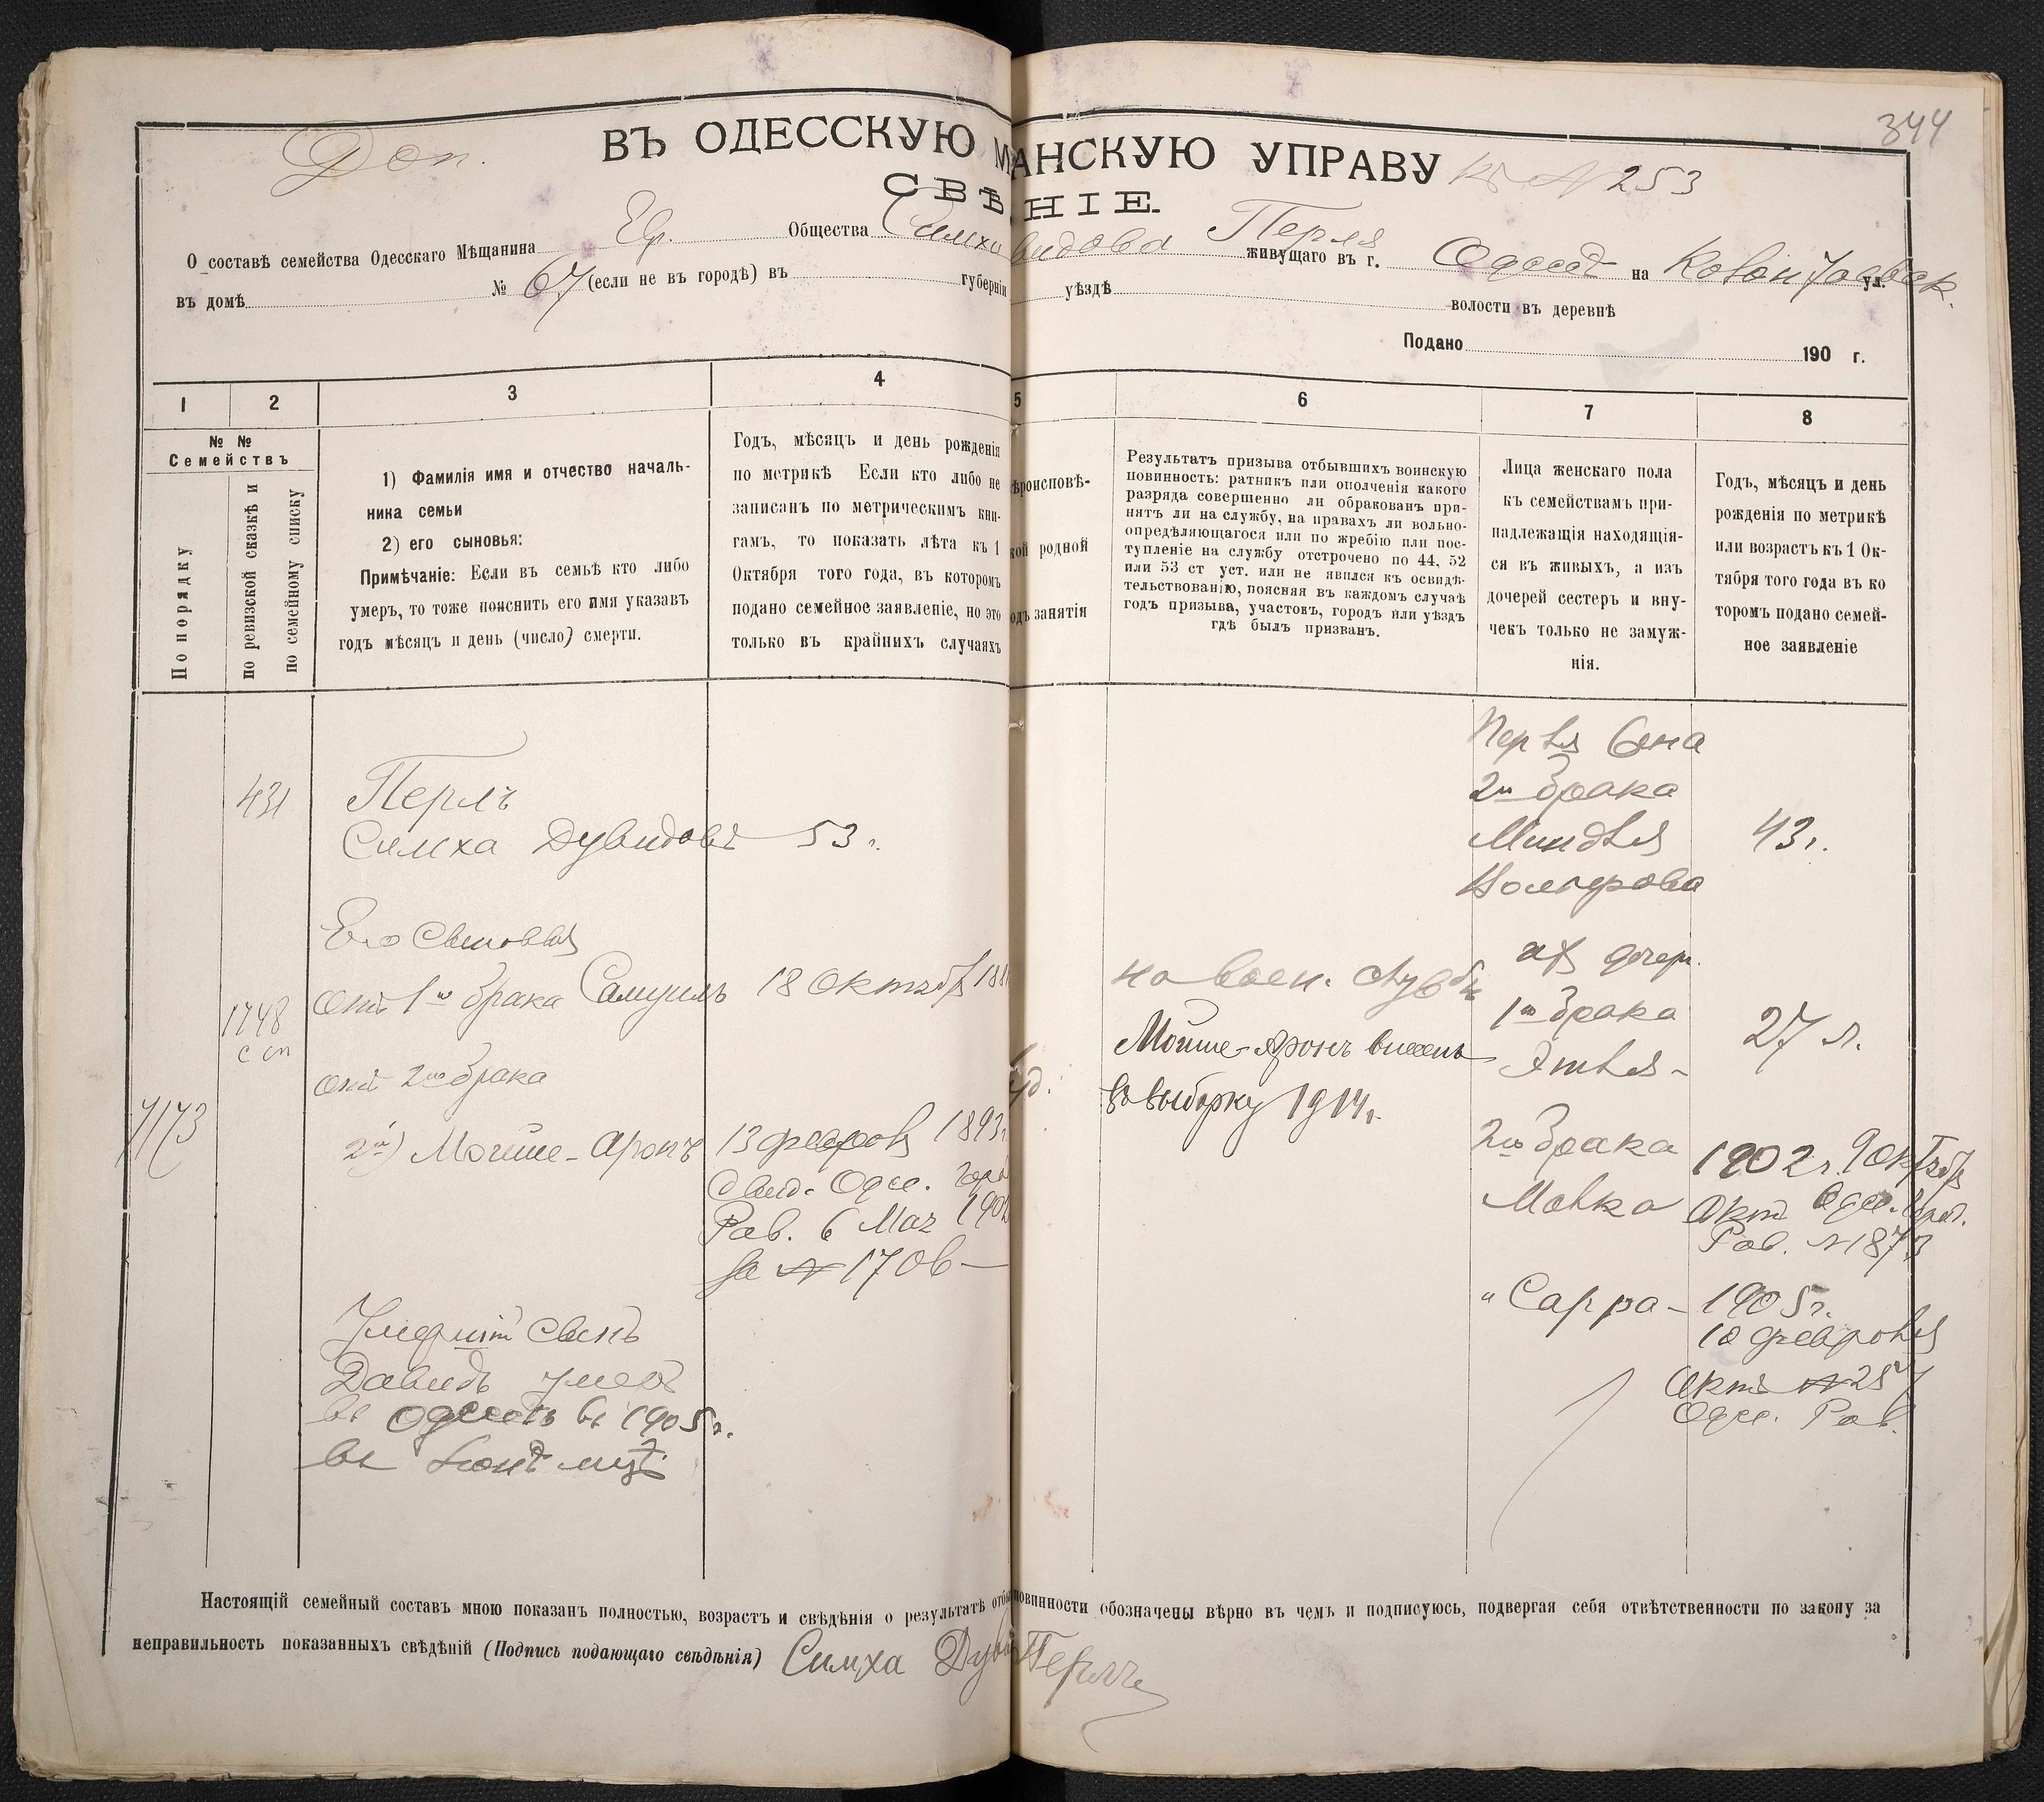 344
Доп.
ВЪ ОДЕССКУЮ МАНСКУЮ УПРАВУ
№ 253
СВѢ НІЕ.
О составѣ семейства Одесскаго Мѣщанина Евр. Общества Симхи видова Перля живущаго въ г. Одессѣ на ул.
въ домѣ № 67 (если не въ городѣ) въ губерніи уѣздѣ волости въ деревнѣ
Подано 190 г.
1 2 3 4 5 6 7 8
№ №
Семействъ
По порядку
по ревизской сказкѣ и
по семейному списку
1) Фамилія имя и отчество началь-
ника семьи
2) его сыновья:
Примѣчаніе: Если въ семьѣ кто либо
умеръ, то тоже пояснить его имя указавъ
годъ мѣсяцъ и день (число) смерти.
Годъ, мѣсяцъ и день рожденія
по метрикѣ Если кто либо не
записанъ по метрическимъ кни-
гамъ, то показать лѣта къ 1
Октября того года, въ которомъ
подано семейное заявленіе, но это
только въ крайнихъ случаяхъ
ѣроисповѣ-
кой родной
одъ занятія
Результатъ призыва отбывшихъ воинскую
повинность: ратникъ или ополченія какого
разряда совершенно ли обракованъ при-
нятъ ли на службу, на правахъ ли вольно-
опредѣляющагося или по жребію или пос-
тупленіе на службу отстрочено по 44, 52
или 53 ст уст. или не явился къ освидѣ-
тельствованію, поясняя въ каждомъ случаѣ
годъ призыва, участовъ, городъ или уѣздъ
гдѣ былъ призванъ.
Лица женскаго пола
къ семействамъ при-
надлежащія находящія-
ся въ живыхъ, а изъ
дочерей сестеръ и вну-
чекъ только не замуж-
нія.
Годъ, мѣсяцъ и день
рожденія по метрикѣ
или возрастъ къ 1 Ок-
тября того года въ ко
торомъ подано семей-
ное заявленіе
431
Перль
Симха Дувидовъ 53 г.
Его сыновья
1748
с сп
отъ 1го брака Самуилъ 18 Октября 188
отъ 2го брака
7173
2й) Мойше-Аронъ 13 февраля 1893г.
Свид. Одес. гор.
Рав. 6 Мая 190
за № 1706
Умершій сынъ
Давидъ умеръ
въ Одессѣ въ 1905 г.
въ мцѣ
на воен. службѣ
Мойше-Аронъ внесенъ
въ выборку 1914 г.
Перля жена
2го брака
Миндля 43 г.
их дочери.
1го брака
Этля- 27 л.
2го брака
Малка 1902 г. 9 Октября
Актъ Одес. Гор.
Рав. № 1873
" Сарра- 1905 г.
10 февраля
Актъ № 257
Одес. Рав.
Настоящій семейный составъ мною показанъ полностью, возрастъ и свѣдѣнія о результатѣ отбы повинности обозначены вѣрно въ чемъ и подписуюсь, подвергая себя отвѣтственности по закону за
неправильность показанныхъ свѣдѣній (Подпись подающаго свѣдѣнія) Симха Дуви Перль